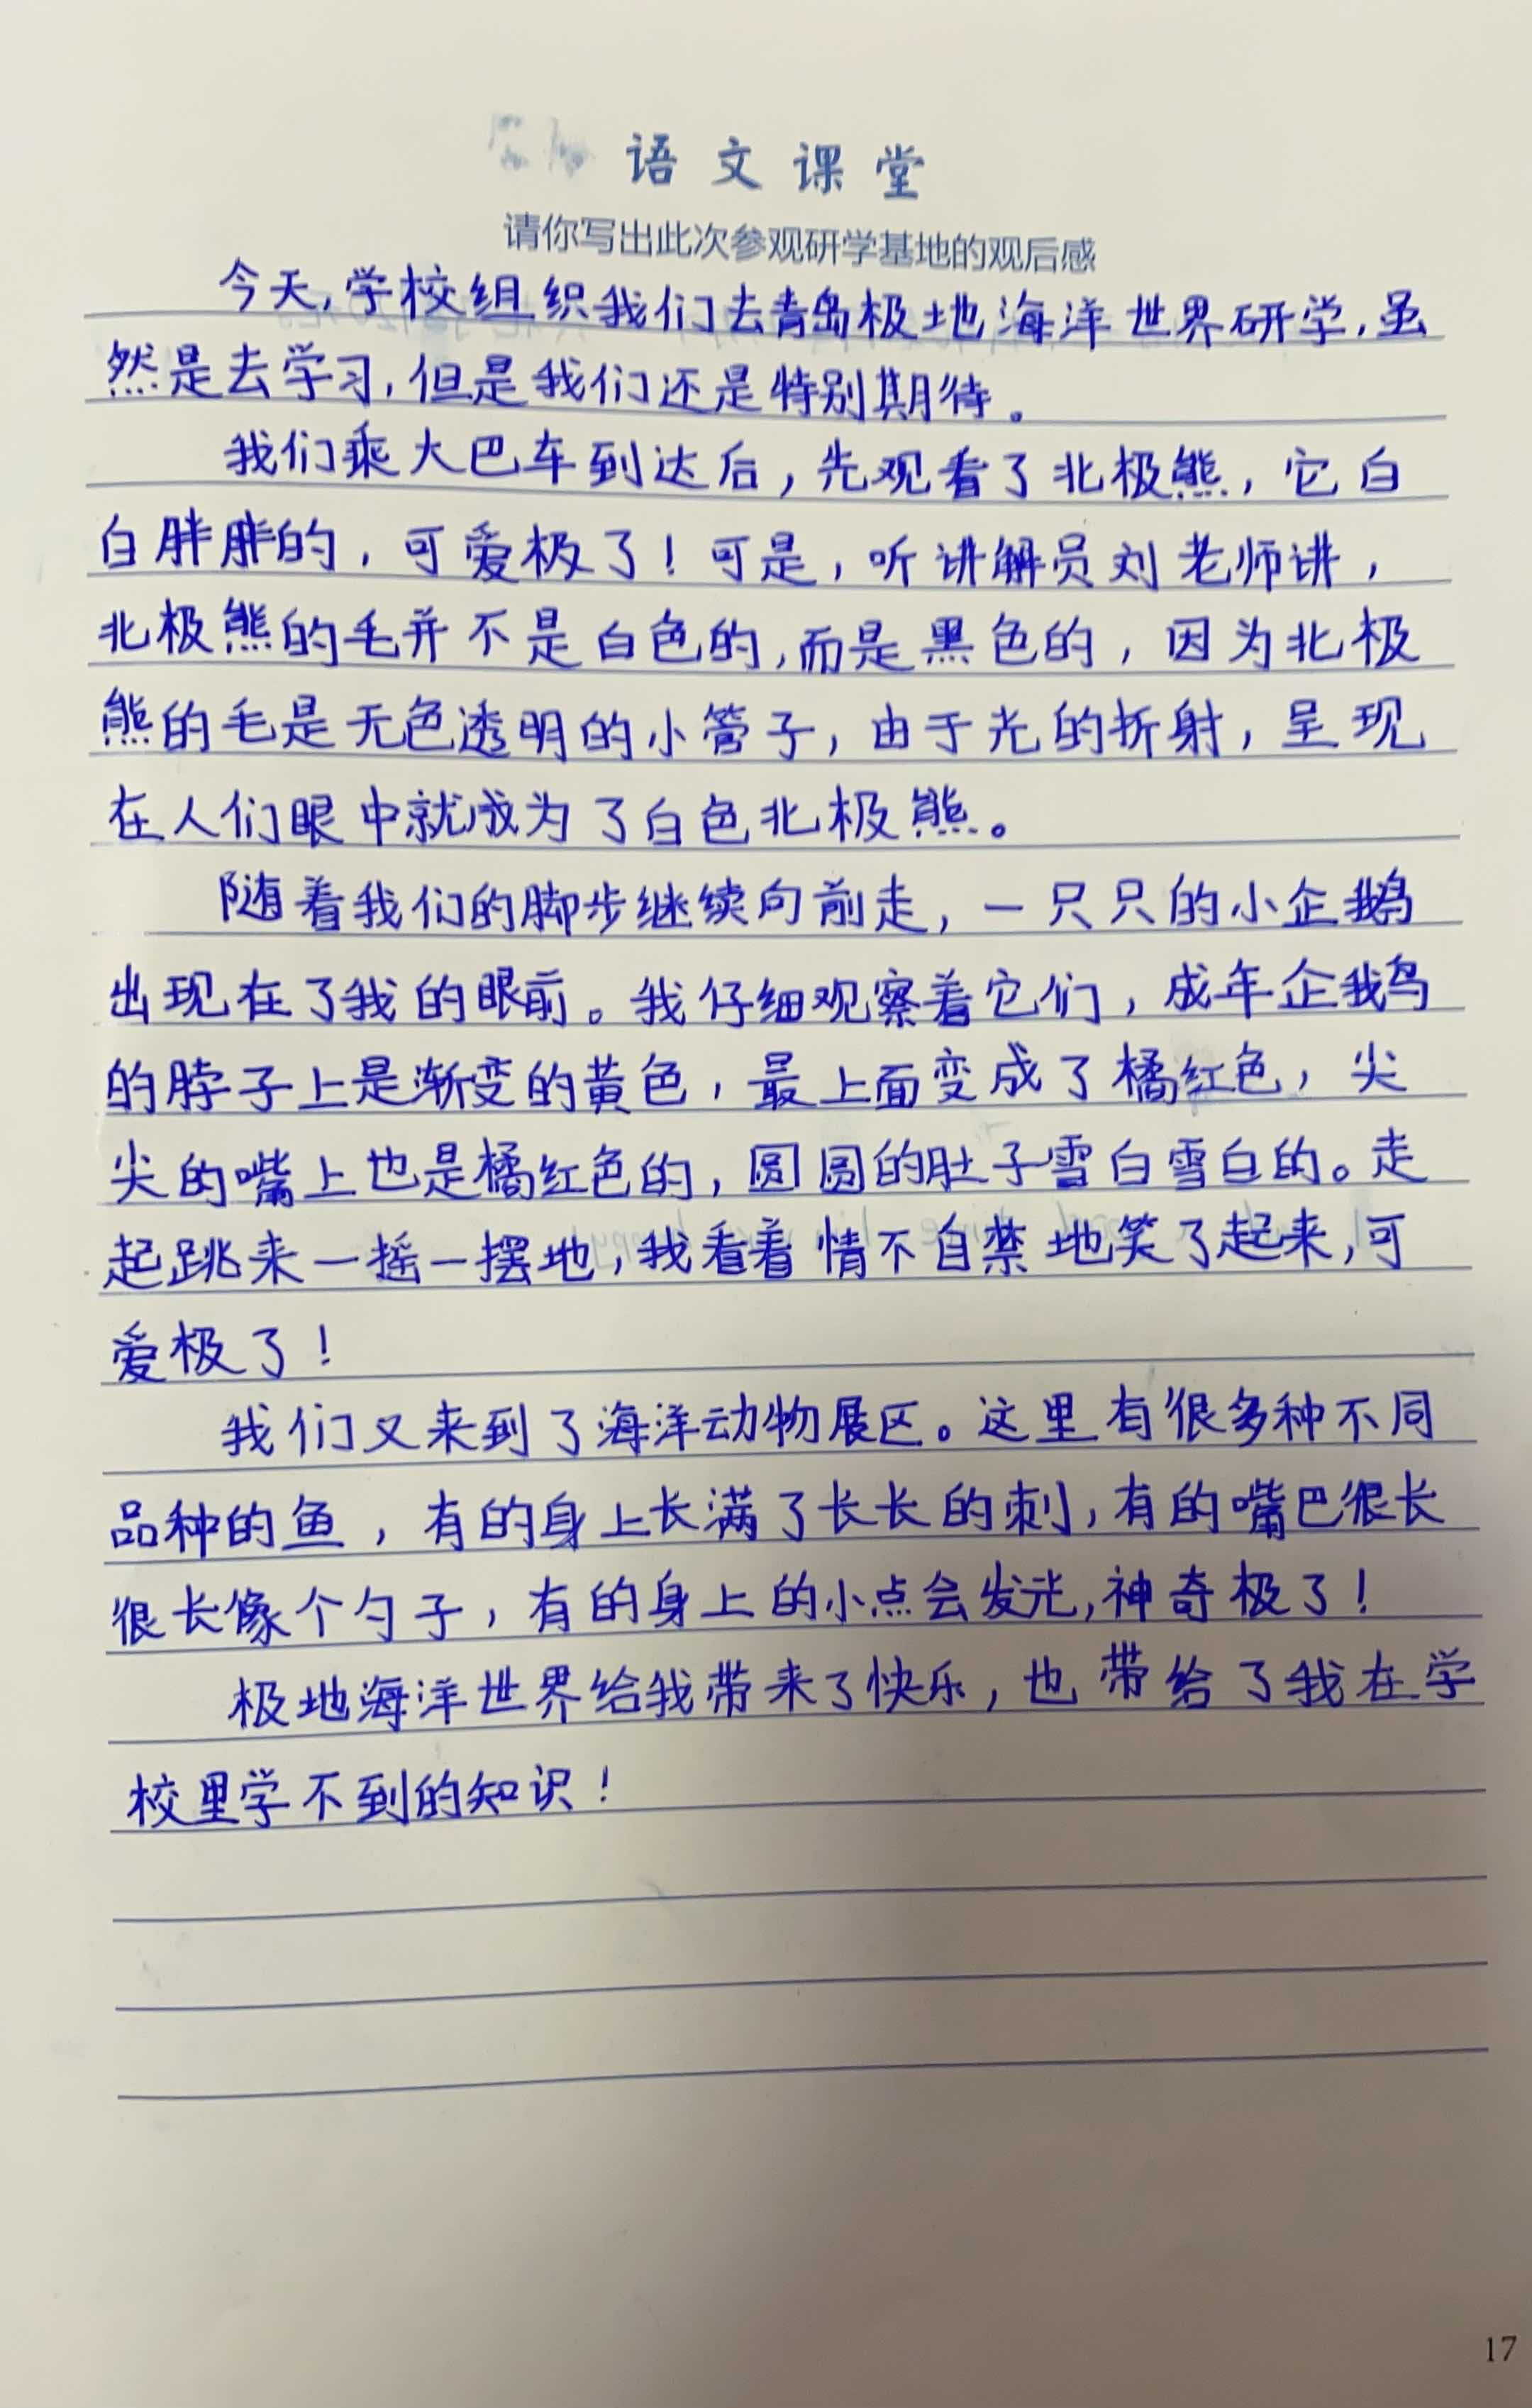 语文课堂
请你写出此次参观研学基地的观后感
今天,学校组织我们去青岛极地海洋世界研学,虽
然是去学习,但是我们还是特别期待。
我们乘大巴车到达后,先观看了北极熊,它白
白胖胖的,可爱极了!可是,听讲解员刘老师讲,
北极熊的毛并不是白色的,而是黑色的,因为北极
熊的毛是无色透明的小管子,由于光的折射,呈现
在人们眼中就成为了白色北极熊。
随着我们的脚步继续向前走,一只只的小企鹅
出现在了我的眼前。我仔细观察着它们,成年企鹅
的脖子上是渐变的黄色,最上面变成了橘红色,尖
尖的嘴上也是橘红色的,圆圆的肚子雪白雪白的。走
起跳来一摇一摆地,我看着情不自禁地笑了起来,可
爱极了!
我们又来到了海洋动物展区。这里有很多种不同
品种的鱼,有的身上长满了长长的刺,有的嘴巴很长
很长像个勺子,有的身上的小点会发光,神奇极了!
极地海洋世界给我带来了快乐,也带给了我在学
校里学不到的知识!
17